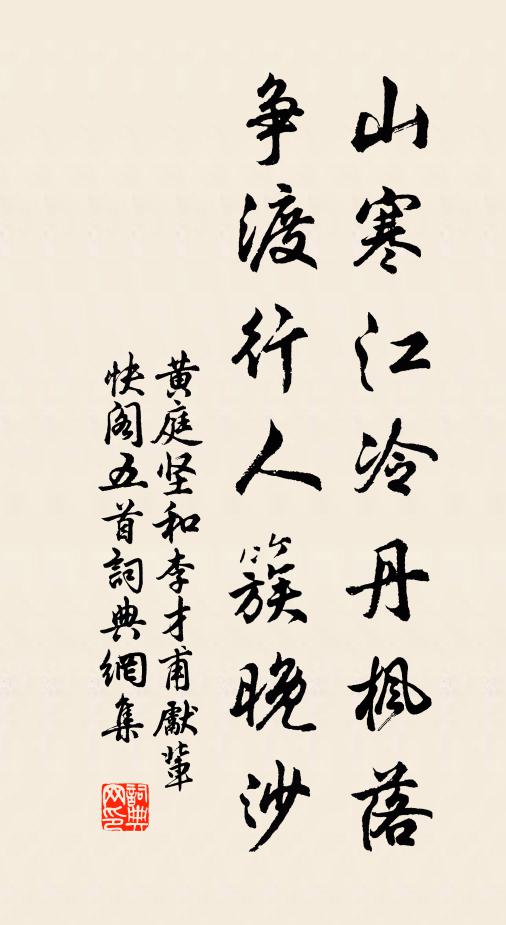 山寒江冷丹枫落
争渡行人簇晚沙
黄庭坚和李才甫獻輩
快阁五首詞典網集
詞典网印